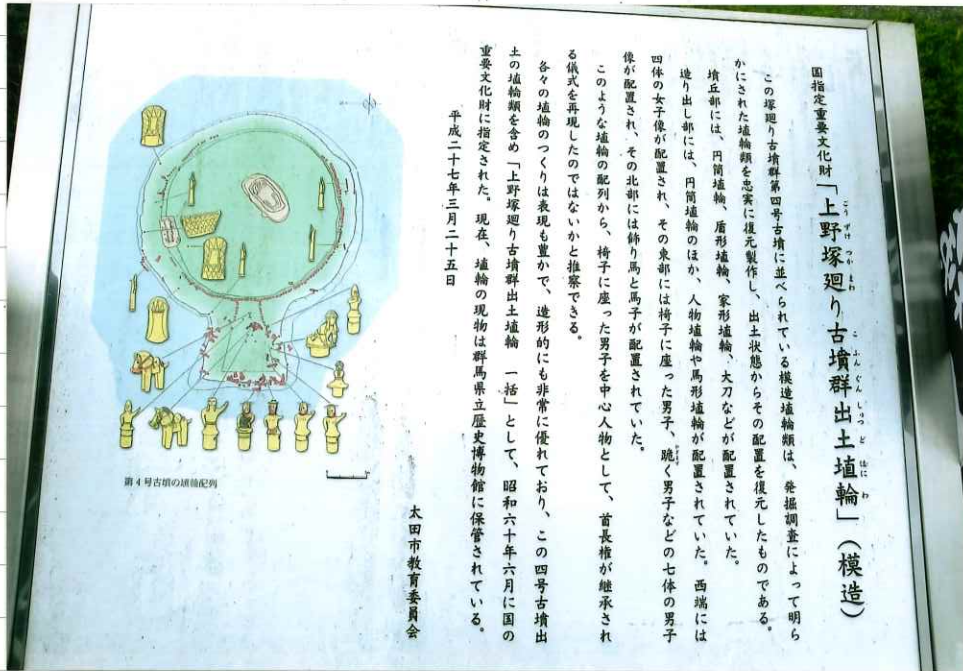 国指定重要文化財「上野塚廻り古墳群出土埴輪」(模造)
こうずけ つか まわ こ ふん ぐん しゅつ ど はに わ
この塚廻り古墳群第四号古墳に並べられている模造埴輪類は、発掘調査によって明ら
かにされた埴輪類を忠実に復元製作し、出土状態からその配置を復元したものである。
墳丘部には、円筒埴輪、盾形埴輪、家形埴輪、大刀などが配置されていた。
造り出し部には、円筒埴輪のほか、人物埴輪や馬形埴輪が配置されていた。西端には
四体の女子像が配置され、その東部には椅子に座った男子、跪く男子などの七体の男子
像が配置され、その北部には飾り馬と馬子が配置されていた。
このような埴輪の配列から、椅子に座った男子を中心人物として、首長権が継承され
る儀式を再現したのではないかと推察できる。
各々の埴輪のつくりは表現も豊かで、造形的にも非常に優れており、この四号古墳出
土の埴輪類を含め「上野塚廻り古墳群出土埴輪 一括」として、昭和六十年六月に国の
重要文化財に指定された。現在、埴輪の現物は群馬県立歴史博物館に保管されている。
平成二十七年三月二十五日
太田市教育委員会
第4号古墳の埴輪配列